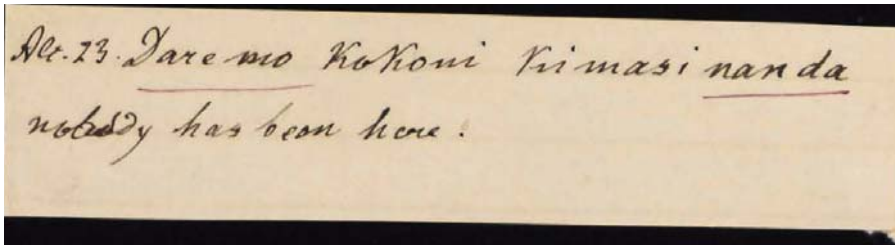 Alt. 23. Daremo KoKoni Kimasi nanda
nobody has been here.